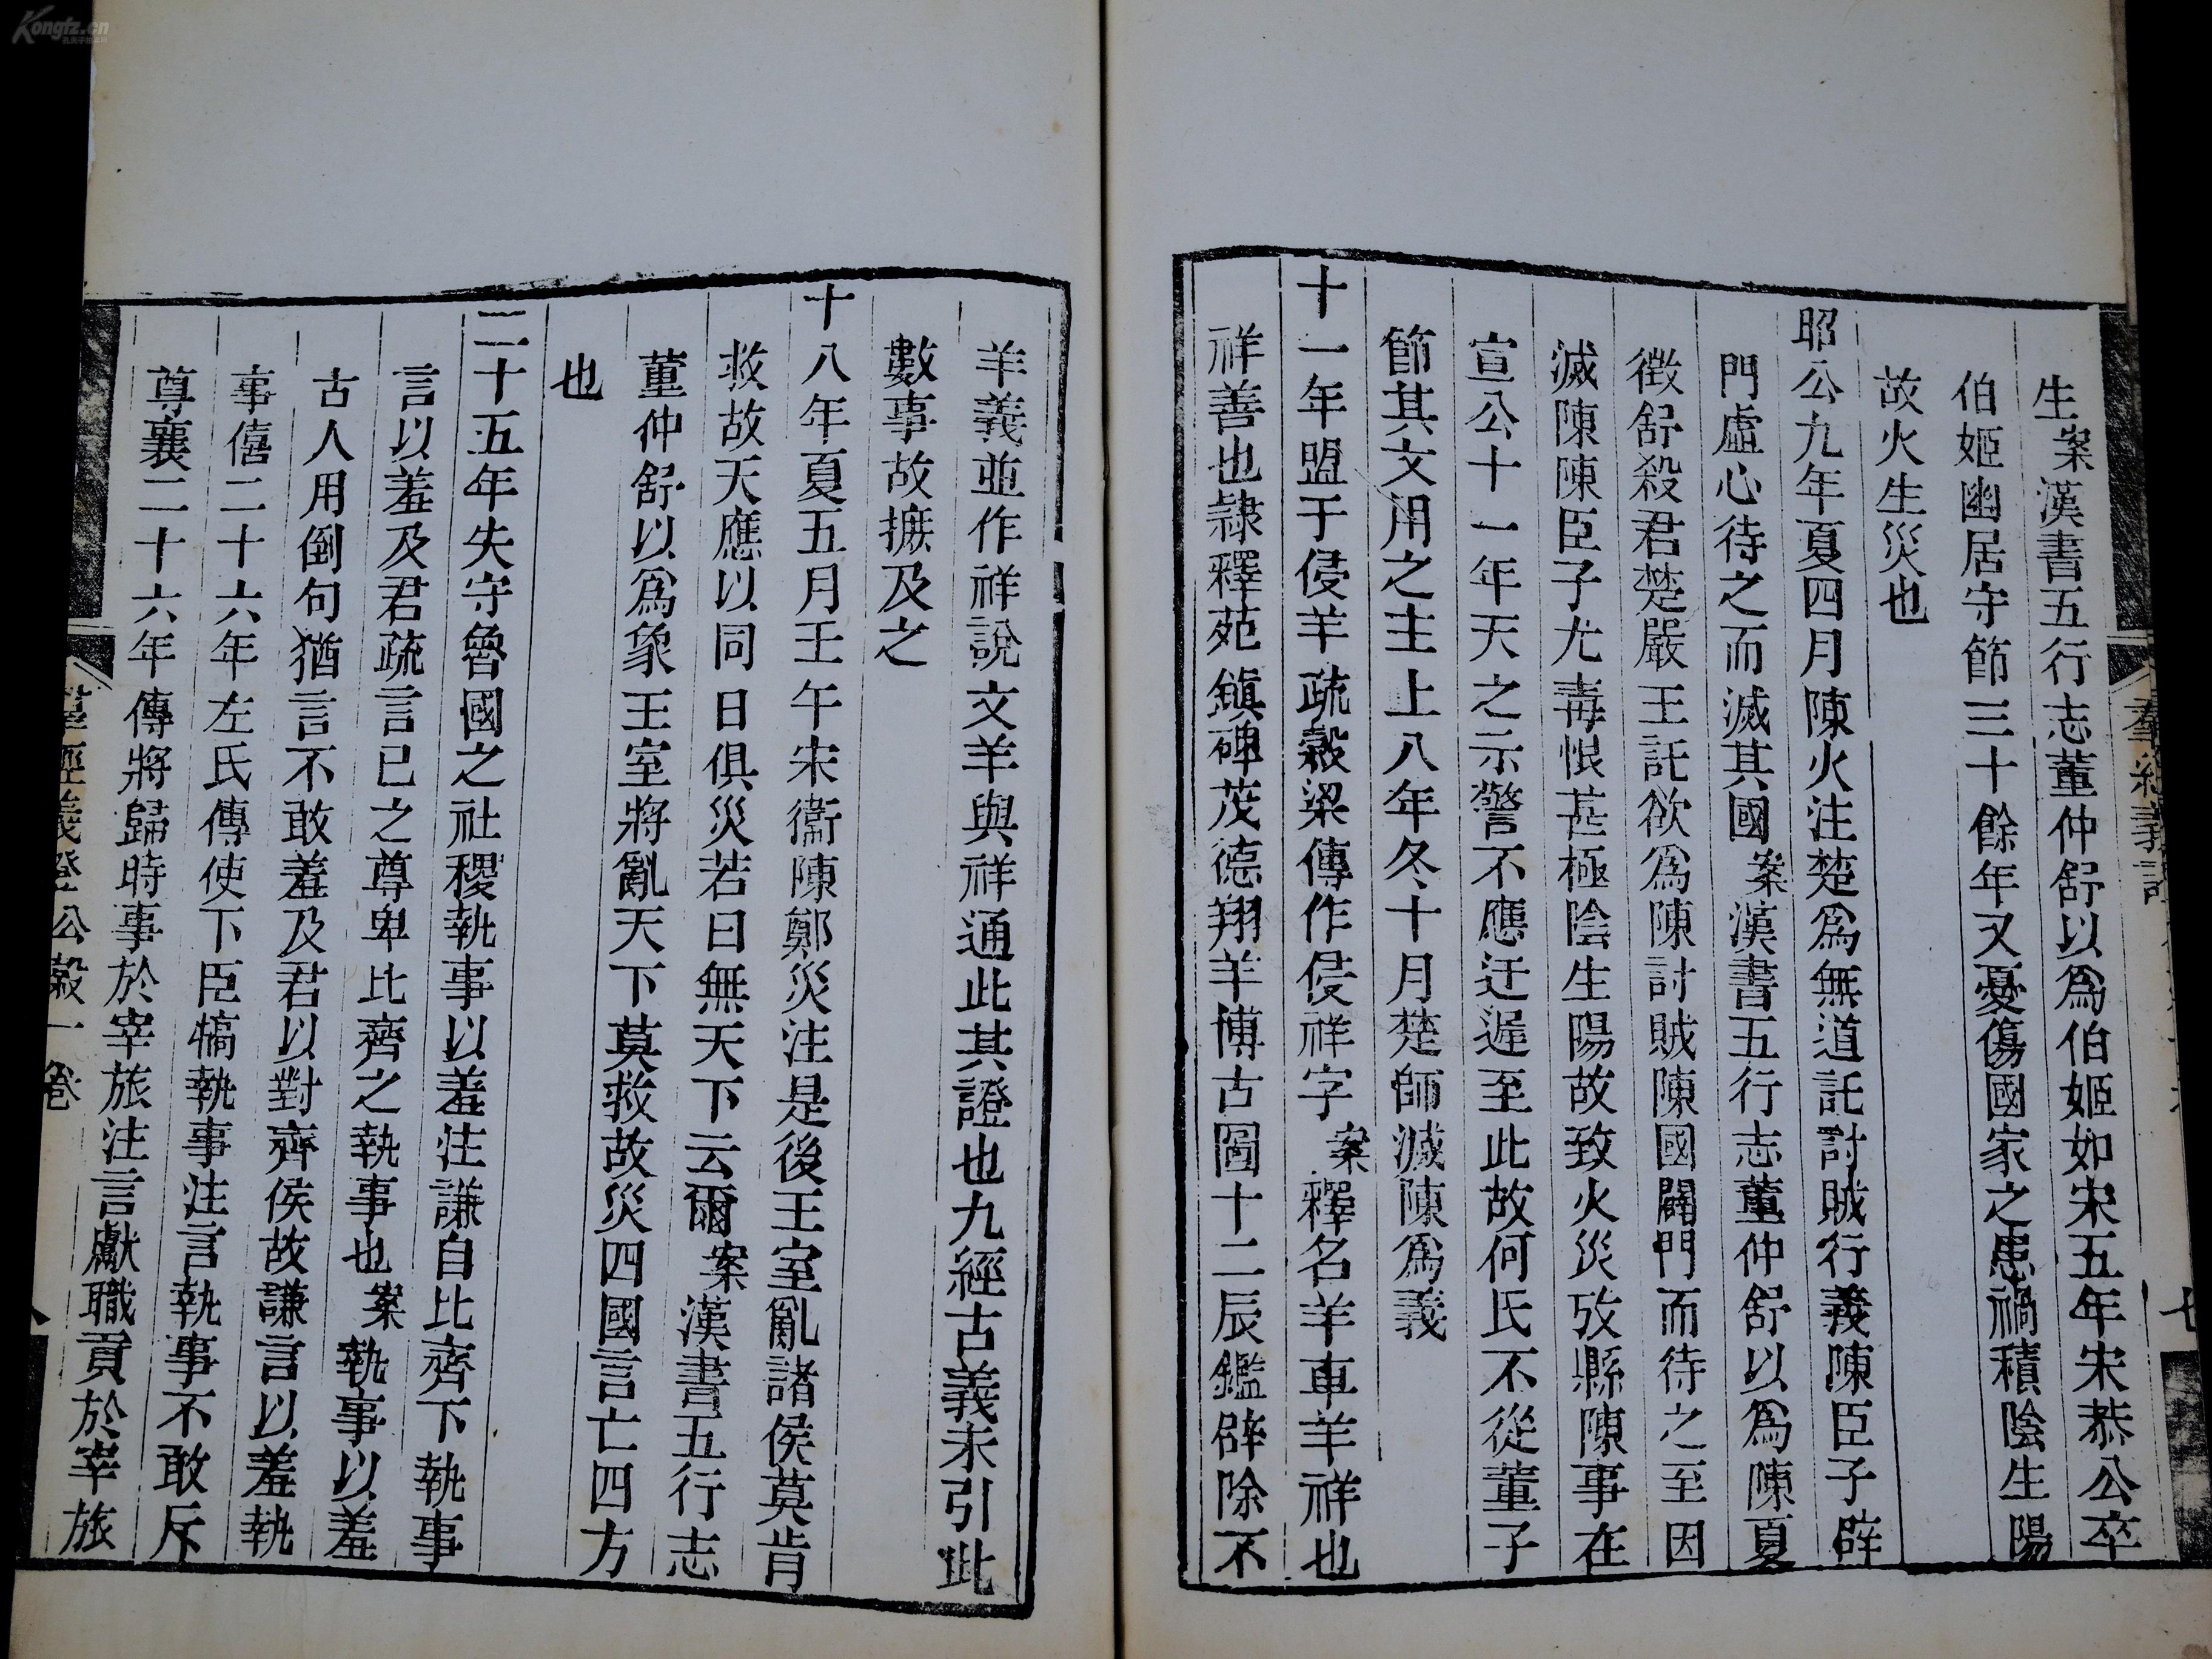 生案漢書五行志董仲舒以爲伯姬如宋五年宋恭公卒
伯姬幽居守節三十餘年又憂傷國家之患禍積陰生陽
故火生災也
昭公九年夏四月陳火注楚爲無道託討賊行義陳臣子辟
門虛心待之而滅其國案漢書五行志董仲舒以爲陳夏
徵舒殺君楚嚴王託欲爲陳討賊陳國闢門而待之至因
滅陳陳臣子尤毒恨甚極陰生陽故致火災攷縣陳事在
宣公十一年天之示警不應迂遲至此故何氏不從董子
節其文用之主上八年冬十月楚師滅陳爲義
十一年盟于侵羊疏穀梁傳作侵祥字案釋名羊車羊祥也
祥善也隷釋苑鎮碑茂德翔羊博古圖十二辰鑑辟除不
羊義並作祥說文羊與祥通此其證也九經古義未引此
數事故摭及之
十八年夏五月壬午宋衞陳鄭災注是後王室亂諸侯莫肯
救故天應以同日俱災若曰無天下云爾案漢書五行志
董仲舒以爲象王室將亂天下莫救故災四國言亡四方
也
二十五年失守魯國之社稷執事以羞注謙自比齊下執事
言以羞及君疏言已之尊卑比齊之執事也案執事以羞
古人用倒句猶言不敢羞及君以對齊侯故謙言以羞執
事僖二十六年左氏傳使下臣犒執事注言執事不敢斥
尊襄二十六年傳將歸時事於宰旅注言獻職貢於宰旅
羣經義證
公穀一卷
Kongfz.cn